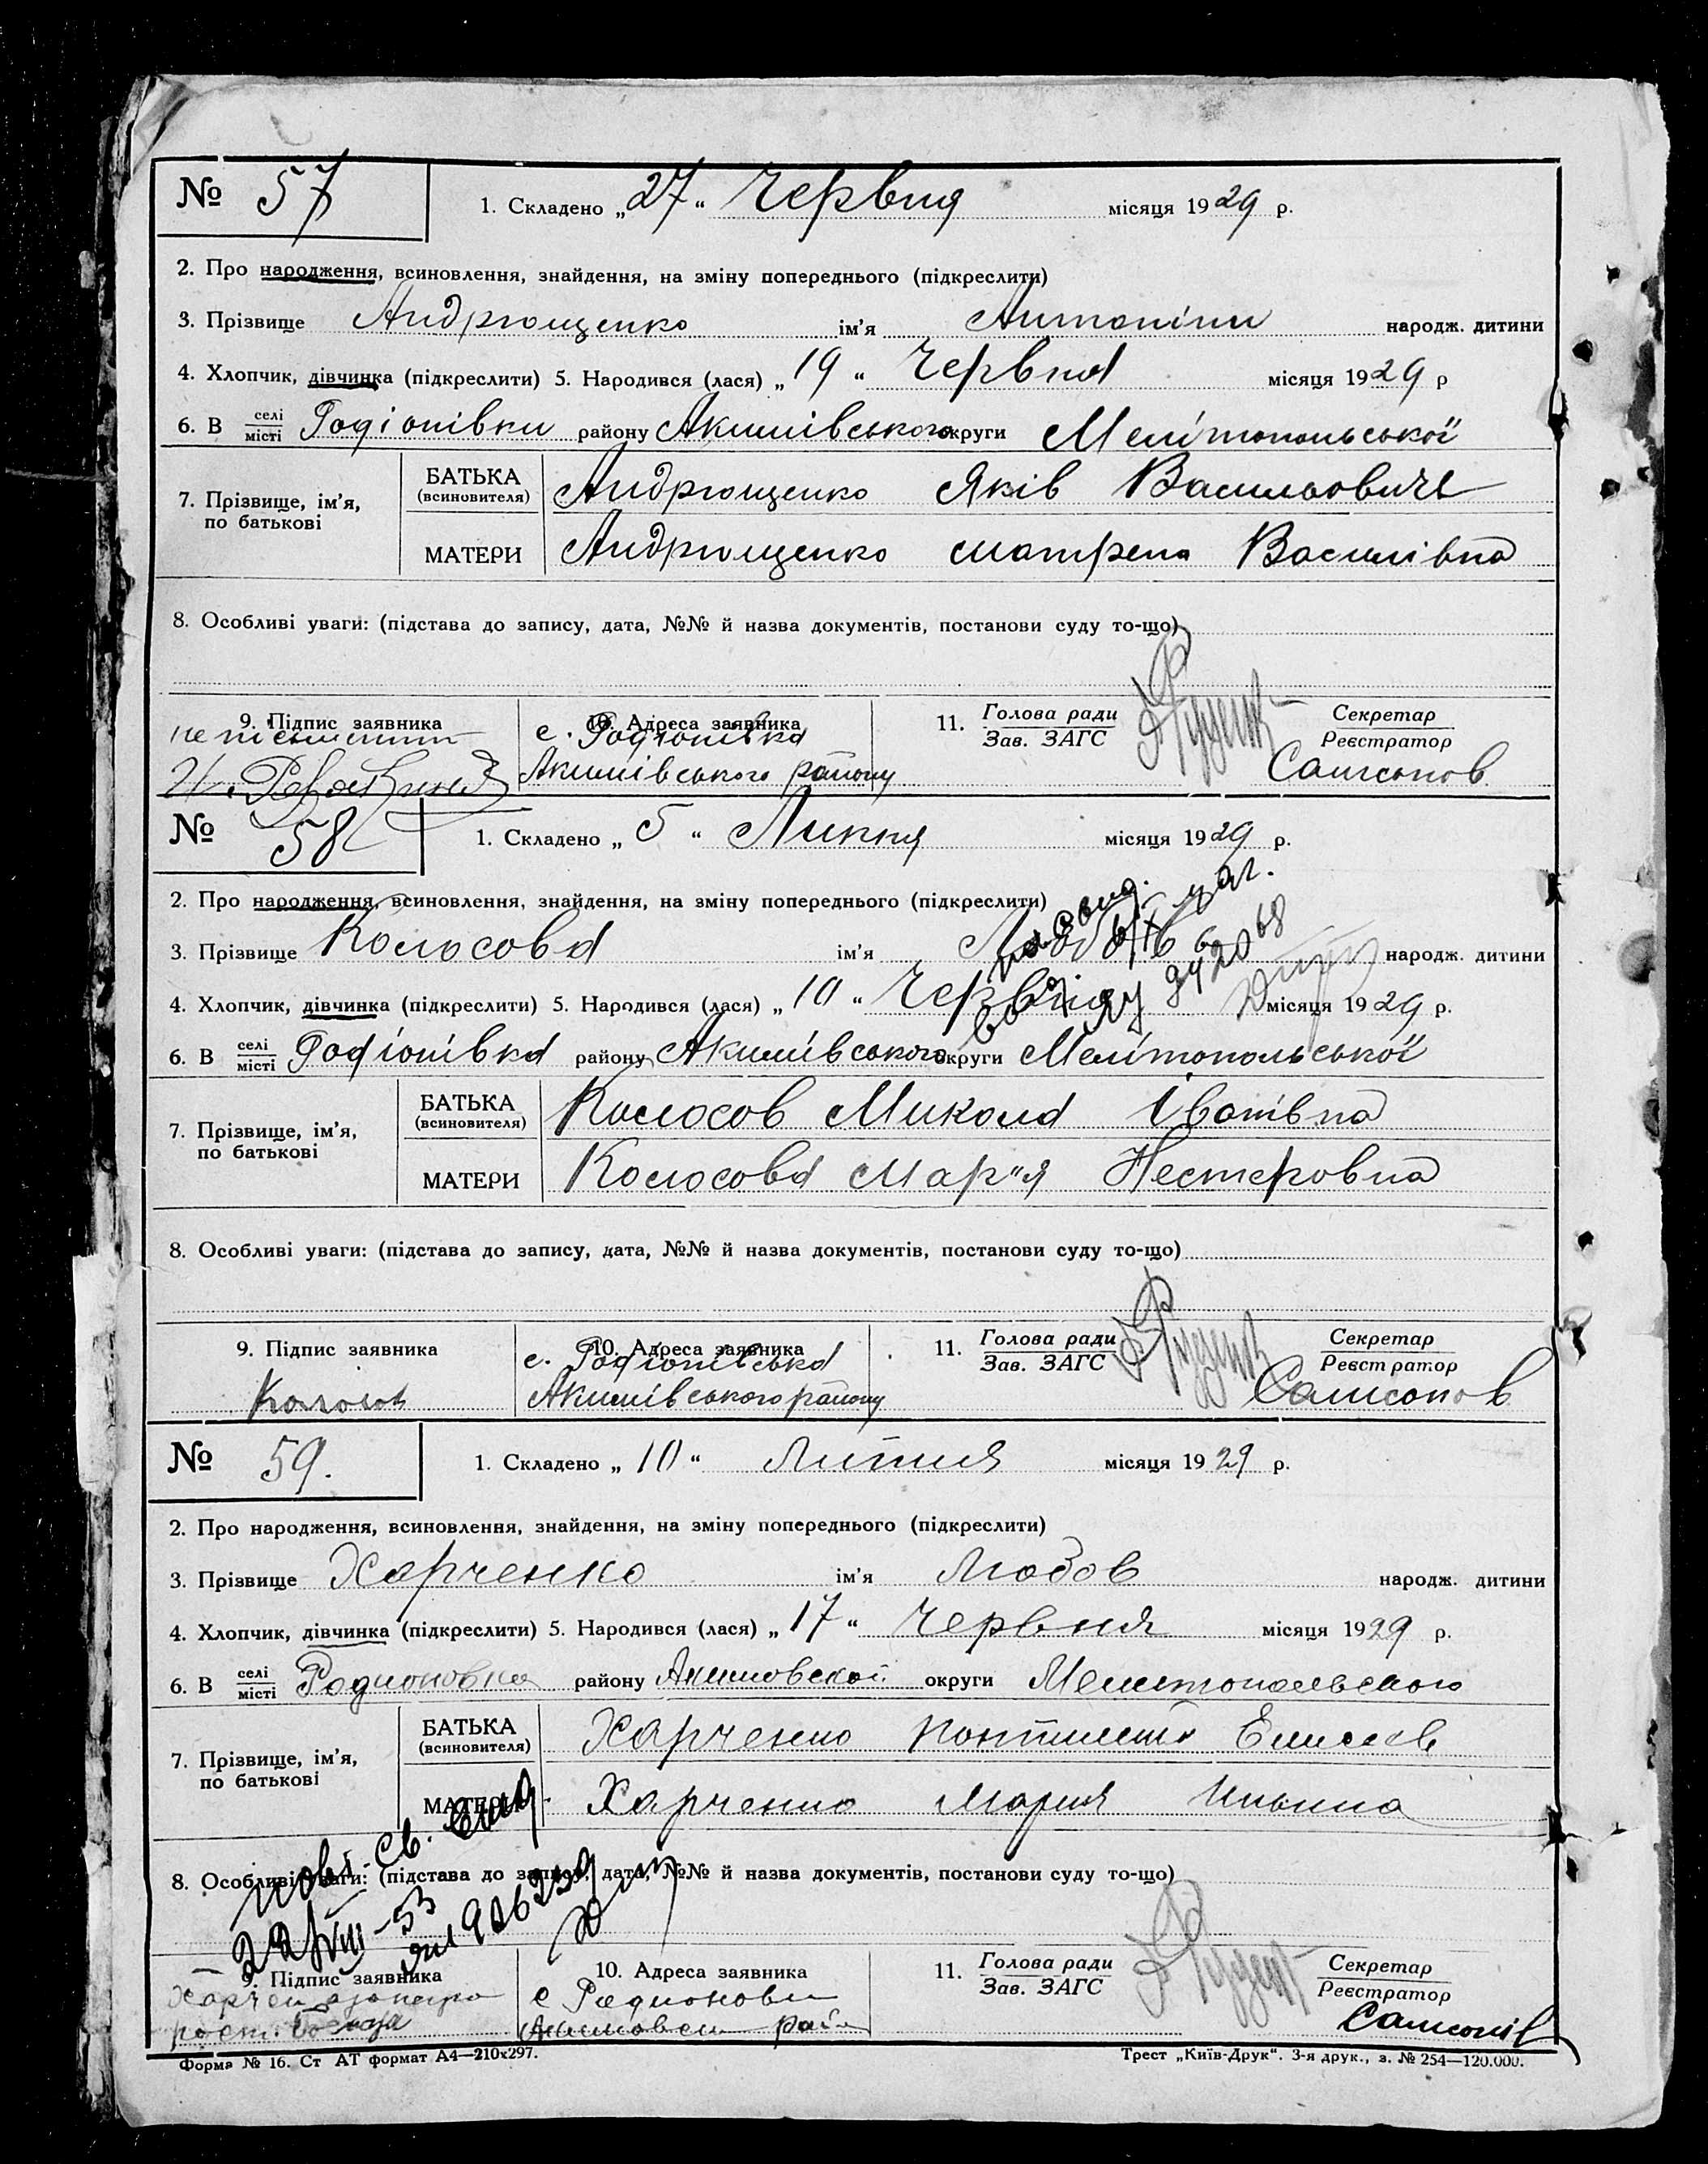 № 57 1. Складено „27“ Червня місяця 1929 р.
2. Про народження, всиновлення, знайдення, на зміну попереднього (підкреслити)
3. Прізвище Андрющенко ім’я Антоніни народж. дитини
4. Хлопчик, дівчинка (підкреслити) 5. Народився (лася) „19“ Червня місяця 1929 р
6. В селі/місті Родіонівки району Акимівського округи Мелітопольської
7. Прізвище, ім’я, по батькові
БАТЬКА (всиновителя) Андрющенко Яків Васильович
МАТЕРИ Андрющенко Матрена Василівна
8. Особливі уваги: (підстава до запису, дата, №№ й назва документів, постанови суду то-що)
9. Підпис заявника 10. Адреса заявника 11. Голова ради Секретар
с. Родіонівка Зав. ЗАГС Реєстратор
Акимівського району Самсонов
№ 58 1. Складено „5“ Липня місяця 1929 р.
2. Про народження, всиновлення, знайдення, на зміну попереднього (підкреслити)
3. Прізвище Колосова ім’я народж. дитини
4. Хлопчик, дівчинка (підкреслити) 5. Народився (лася) „10“ Червня місяця 1929 р.
6. В селі/місті Родіонівка району Акимівського округи Мелітопольської
7. Прізвище, ім’я, по батькові
БАТЬКА (всиновителя) Колосов Микола Іванівна
МАТЕРИ Колосова Мар"я Нестеровна
8. Особливі уваги: (підстава до запису, дата, №№ й назва документів, постанови суду то-що)
9. Підпис заявника 10. Адреса заявника 11. Голова ради Секретар
с. Зав. ЗАГС Реєстратор
Колосов Акимівського району Самсонов
№ 59. 1. Складено „10“ Липня місяця 1929 р.
2. Про народження, всиновлення, знайдення, на зміну попереднього (підкреслити)
3. Прізвище Харченко ім’я Любов народж. дитини
4. Хлопчик, дівчинка (підкреслити) 5. Народився (лася) „17“ Червня місяця 1929 р.
6. В селі/місті Родионовка району Акимовской округи Мелитопольского
7. Прізвище, ім’я, по батькові
БАТЬКА (всиновителя) Харченко
МАТЕРИ Харченко Мария
8. Особливі уваги: (підстава до запису, дата, №№ й назва документів, постанови суду то-що)
9. Підпис заявника 10. Адреса заявника 11. Голова ради Секретар
с Зав. ЗАГС Реєстратор
Форма № 16. Ст АТ формат А4—210х297. Трест „Київ-Друк“. 3-я друк., з. № 254—120.000.